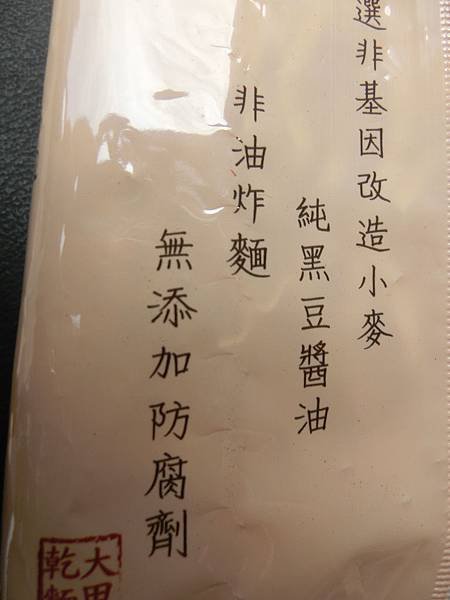 選非基因改造小麥
純黑豆醬油
非油炸麵
無添加防腐劑
大甲
乾麵